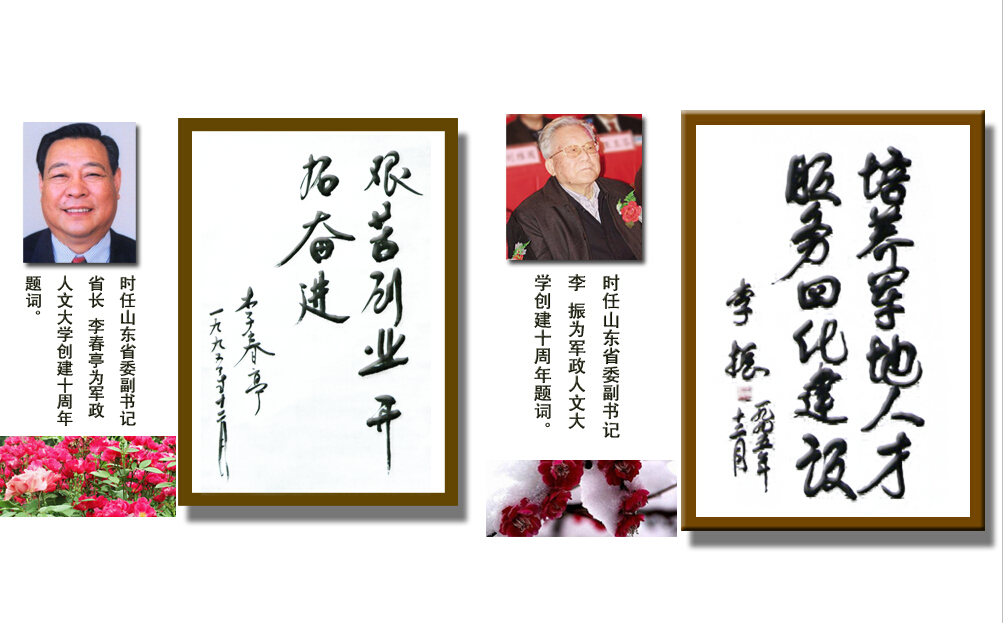 时任山东省委副书记
省长 李春亭为军政
人文大学创建十周年
题词。
艰苦创业 开
拓奋进
李春亭
一九九五年十二月
时任山东省委副书记
李 振为军政人文大
学创建十周年题词。
培养军地人才
服务四化建设
李振
一九九五年
十二月